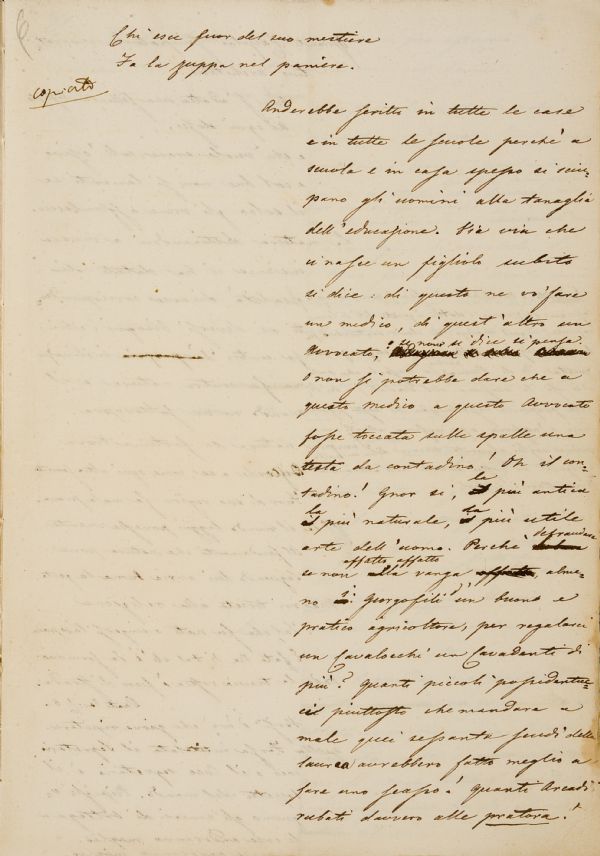 Chi esce fuor del suo mestiere
Fa la zuppa nel paniere.
copiato
Anderebbe scritto in tutte le case
e in tutte le scuole perchè a
scuola e in casa spesso si sciu-
pano gli uomini alla tanaglia
dell'educazione. Via via che
ci nasce un figliolo subito
si dice: di questo ne vo' fare
un medico, di quest'altro un
se non si dice si pensa.
Avvocato;
O non si potrebbe dare che a
questo medico a questo Avvocato
fosse toccata sulle spalle una
testa da contadino! Oh il con-
tadino! Gnor sì, la più antica
la più naturale, la più utile
arte dell'uomo. Perchè defraudare
se non affatto affatto
alla vanga affatto, alme-
no i Gorgofili d'un buono e
pratico agricoltore, per regalarci
un Cavalocchi un Cavadenti di
più? quanti piccoli possidentuc-
ci piuttosto che mandare a
male quei sessanta scudi della
laurea avrebbero fatto meglio a
fare uno scasso! quanti Arcadi
rubati davvero alle pratora!